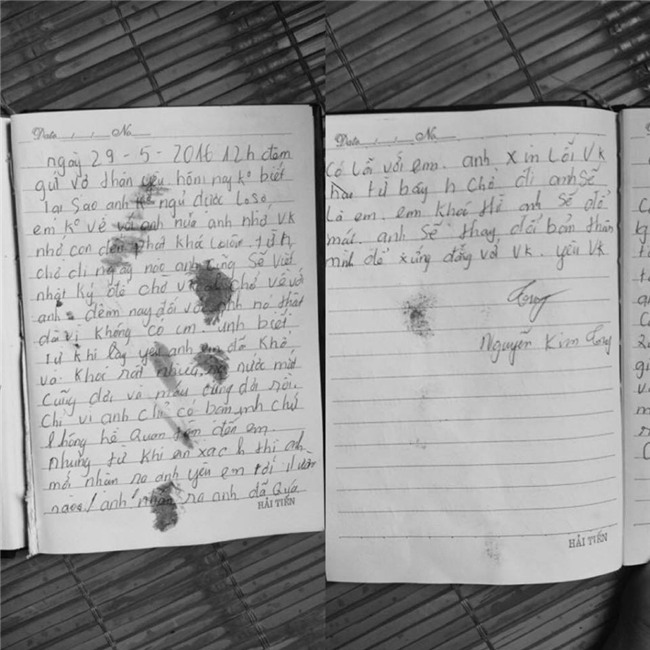 Date / / No
ngày 29-5-2016 12h đêm
gửi vở thân yêu hôm nay ko biết
lại sao anh ko ngủ được
em ko về với anh nữa anh nhớ Vk
nhớ con đến phát khóc luôn từ h
chở đi ngày nào anh cũng Sẽ Viết
nhật ký để chờ về với
anh đêm nay đối với anh nó thật
dã vị không có em anh biết
từ khi lấy anh em đã khổ
và khóc rất nhiều nước mắt
cũng đổi và máu cũng đổi rồi.
Chỉ vì anh chỉ có bản chứ
không hề Quan tâm đến em
nhưng từ khi em xa h thì anh
mới nhận ra anh yêu em tới
nào! anh nhận ra anh đã Quá
HẢI TIẾN
Date / / No
Có lỗi với em. anh xin Lỗi Vk
từ bây h chở đi anh Sẽ
Là em. em khóc thì anh Sẽ để
mát. anh Sẽ thay đổi bản thân
mình để xứng đáng với Vk. yêu Vk
Nguyễn Kim
HẢI TIẾN